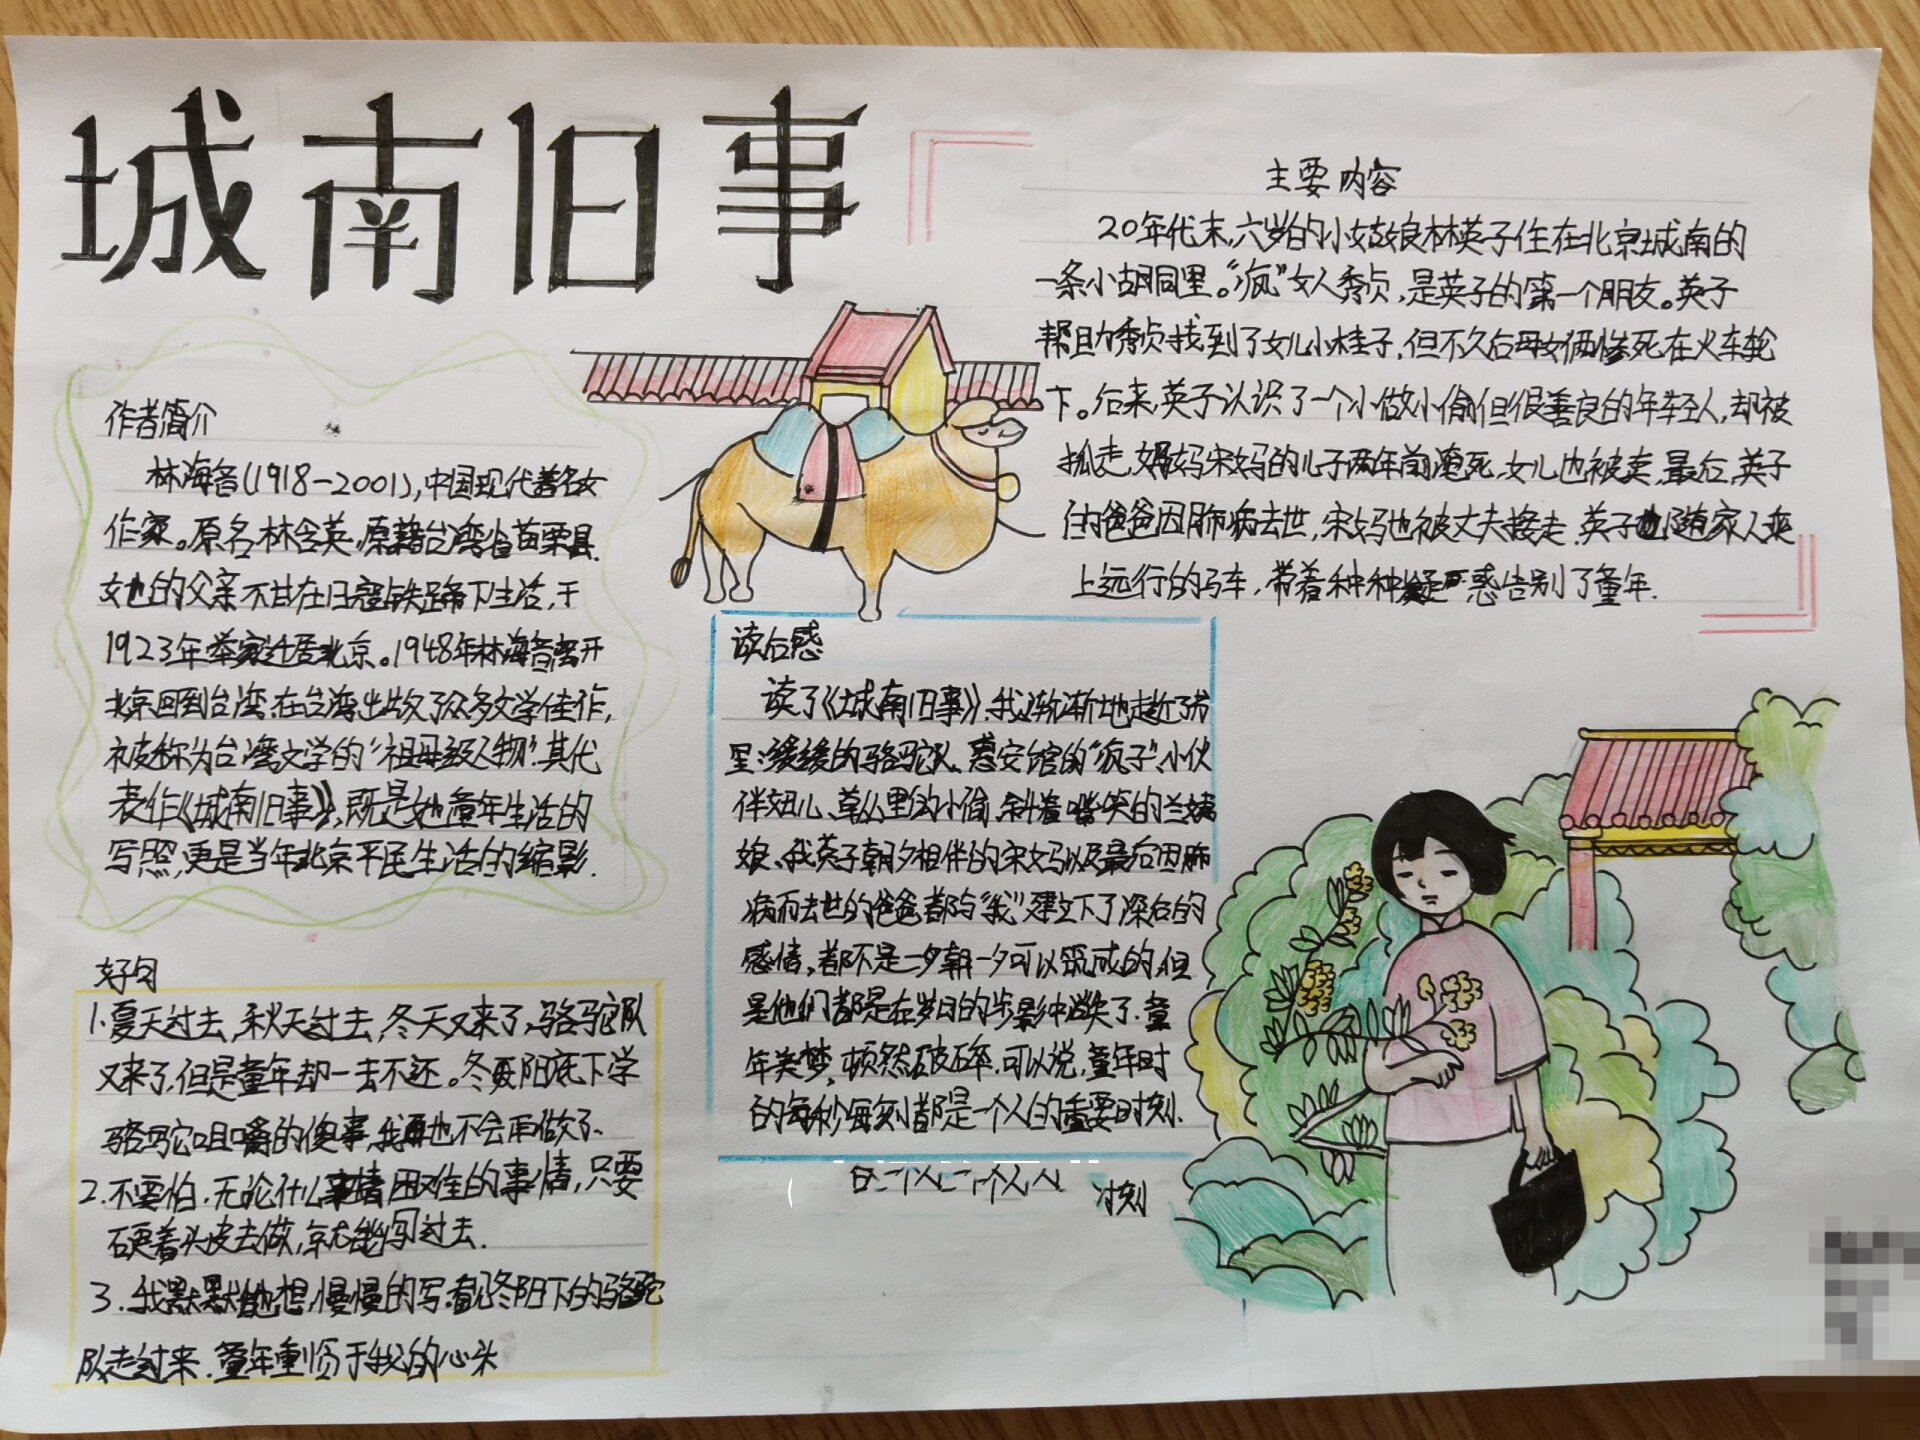 城南旧事
作者简介
林海音(1918-2001),中国现代著名女
作家。原名林含英,原籍台湾省苗栗县.
她的父亲不甘在日寇铁蹄下生活,于
1923年举家迁居北京。1948年林海音离开
北京回到台湾.在台湾出版了众多文学佳作,
被称为台湾文学的"祖母级人物".其代
表作《城南旧事》,既是她童年生活的
写照,更是当年北京平民生活的缩影.
好句
1.夏天过去,秋天过去,冬天又来了,骆驼队
又来了,但是童年却一去不还。冬阳底下学
骆驼咀嚼的傻事,我也不会再做了.
2.不要怕.无论什么困难的事情,只要
硬着头皮去做,就能闯过去.
3.我默默地想,慢慢的写.看见冬阳下的骆驼
队走过来.童年重临于我的心头
主要内容
20年代末,六岁的小姑娘林英子住在北京城南的
一条小胡同里。"疯"女人秀贞,是英子的第一个朋友。英子
帮助秀贞找到了女儿小桂子,但不久后母女俩惨死在火车轮
下。后来,英子认识了一个小做小偷但很善良的年轻人,却被
抓走,妈妈宋妈的儿子两年前淹死,女儿也被卖,最后,英子
的爸爸因肺病去世,宋妈也被丈夫接走.英子也随家人乘
上远行的马车,带着种种疑惑告别了童年.
读后感
读了《城南旧事》.我渐渐地走近了书
里:缓缓的骆驼队、惠安馆的"疯子"、小伙
伴妞儿、草丛里的小偷、斜着嘴笑的兰姨
娘、我英子朝夕相伴的宋妈以及最后因肺
病而去世的爸爸都与"我"建立下了深后的
感情,都不是一夕朝一夕可以筑成的,但
是他们都是在岁日的步影中消失了.童
年美梦,顿然破碎.可以说,童年时
的每秒每刻都是一个人的重要时刻.
时刻